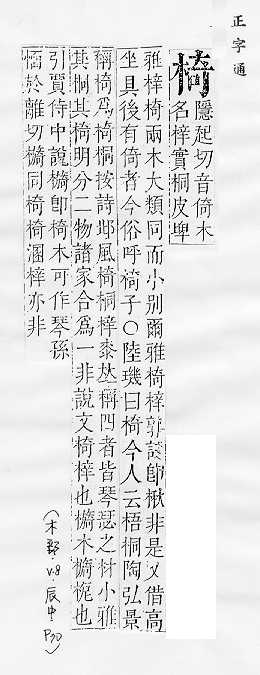 正字通
椅
隱起切音倚木
名梓實桐皮埤
雅梓椅兩木大類同而小别爾雅椅梓郭註即楸非是又借高
坐具後有倚者今俗呼椅子○陸璣曰椅今人云梧桐陶弘景
稱椅爲椅桐按詩邶風椅桐梓桼並稱四者皆琴瑟之材小雅
其桐其椅明分二物諸家合爲一非說文椅梓也檹木檹柂也
引賈侍中說檹即椅木可作琴孫
愐於離切檹同椅椅溷梓亦非
(木部.V.8.辰中.P30)